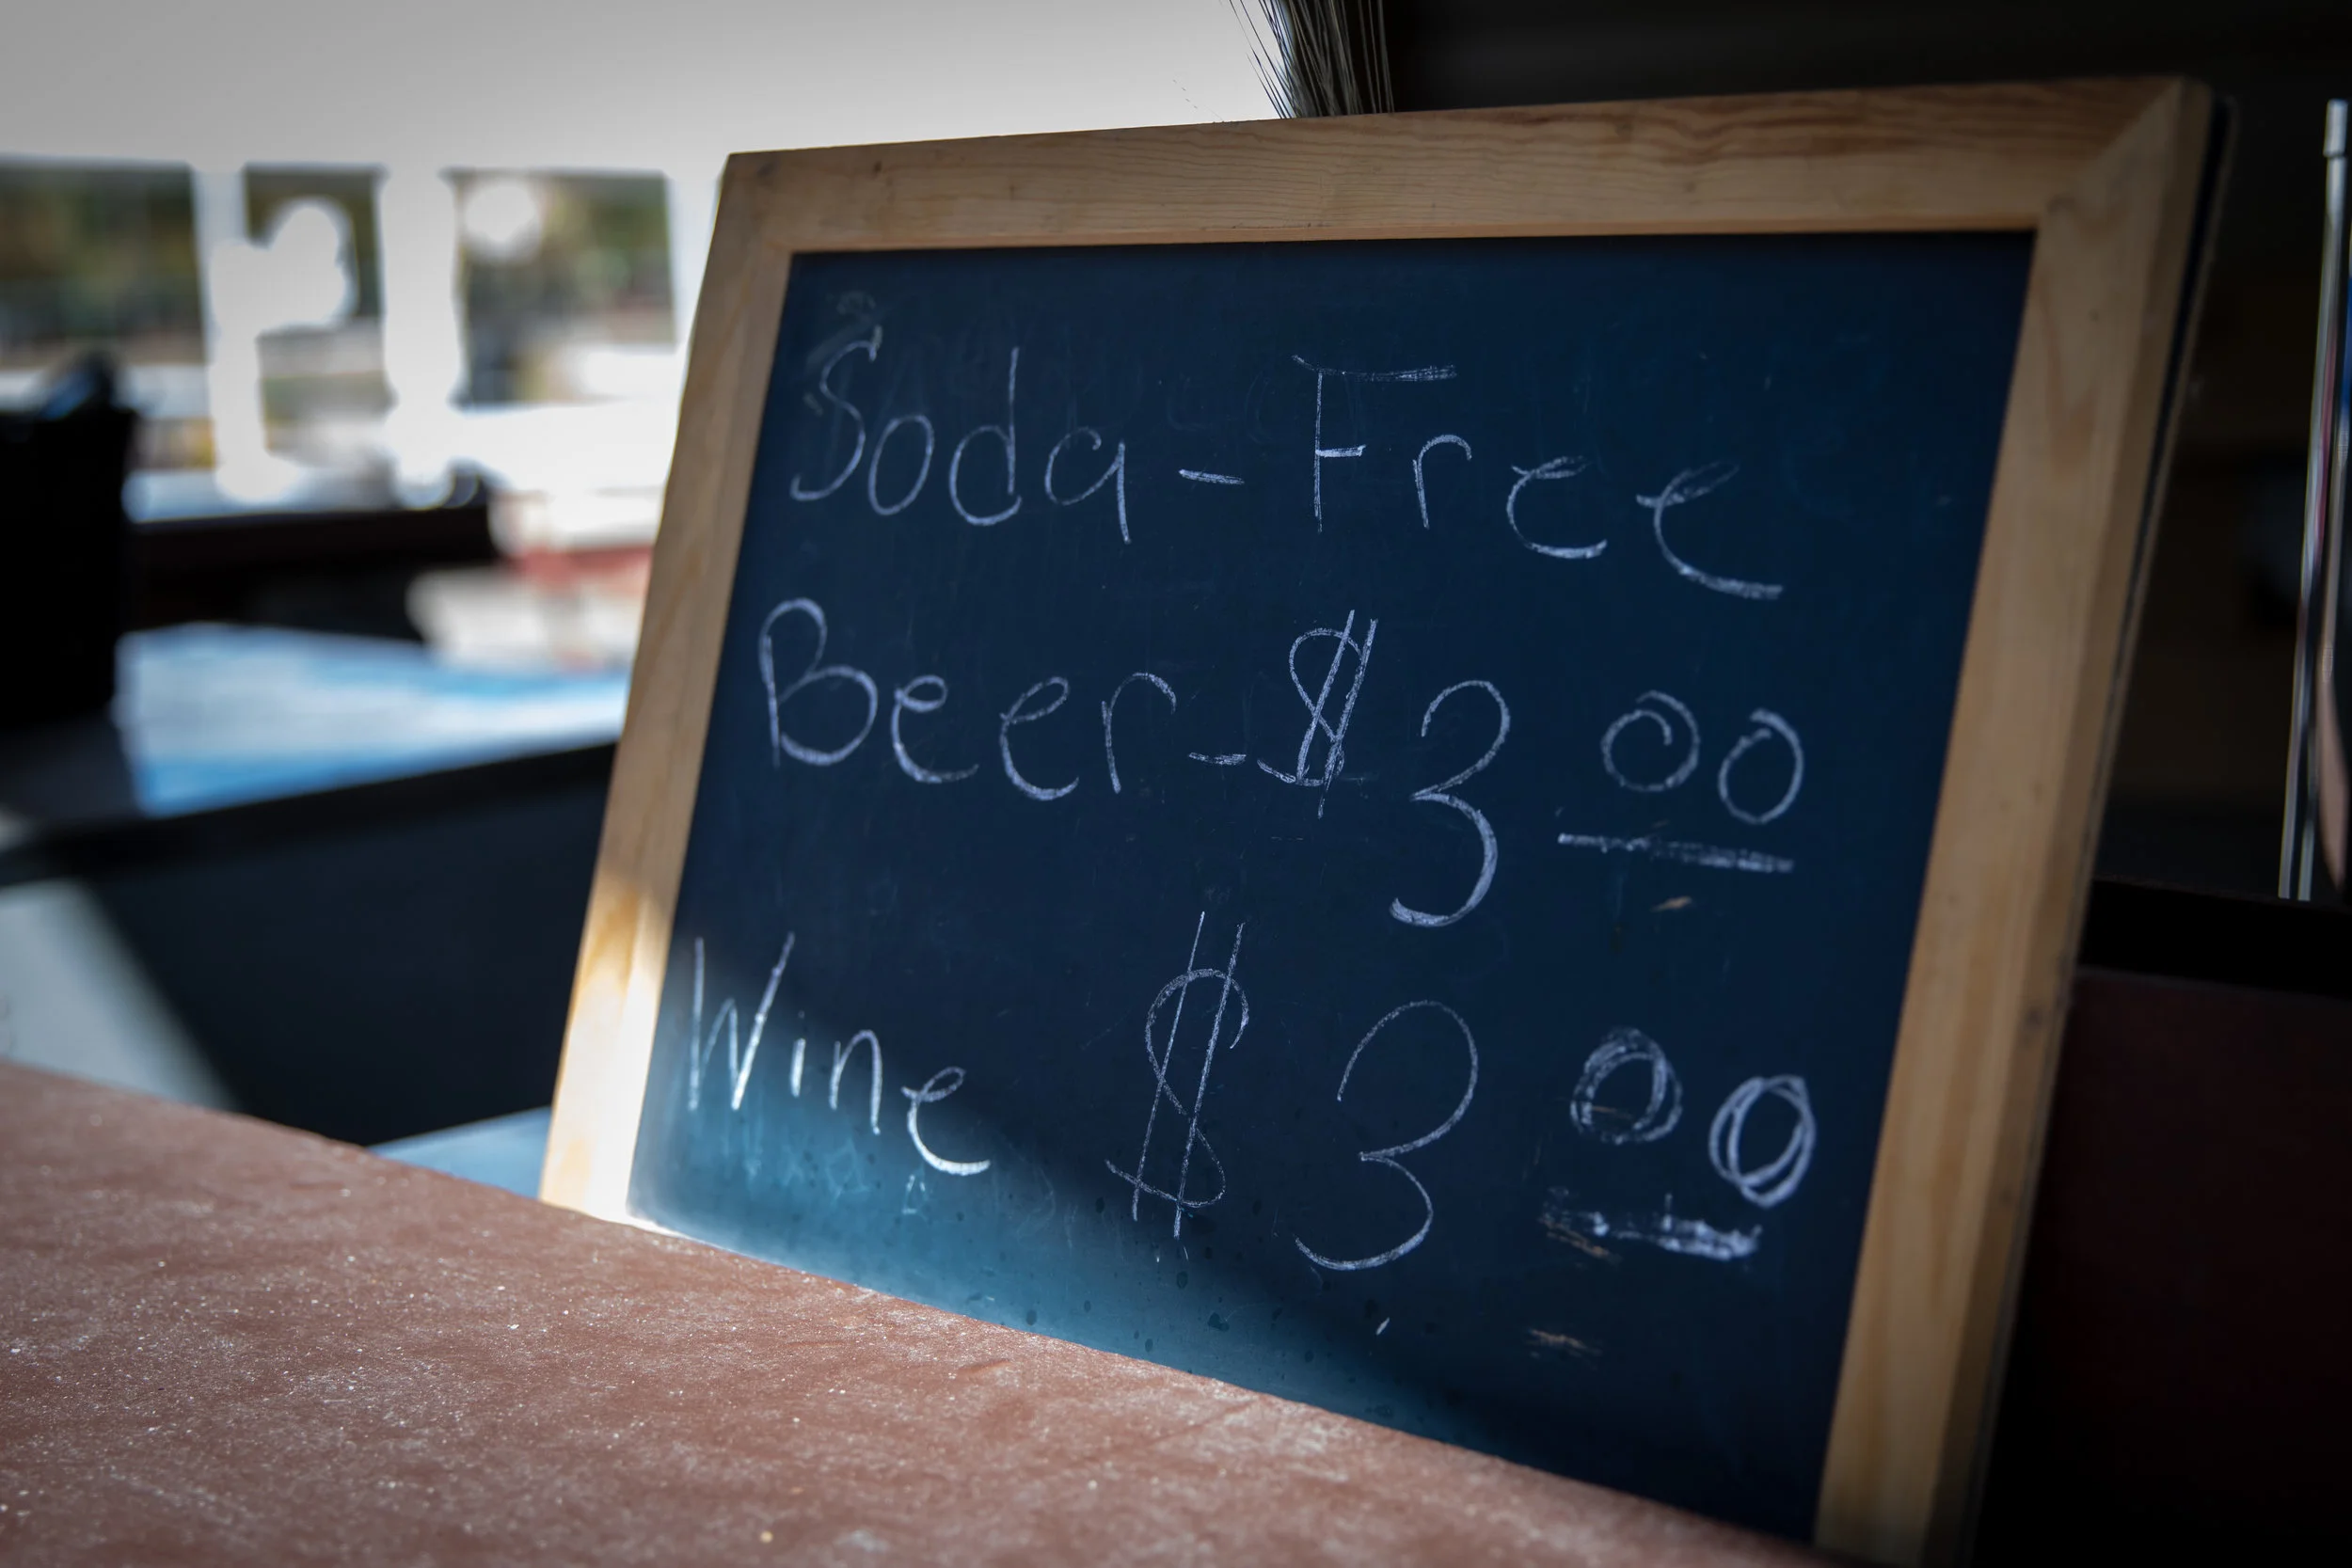 Soda-Free
Beer-$3 00
Wine $3 00